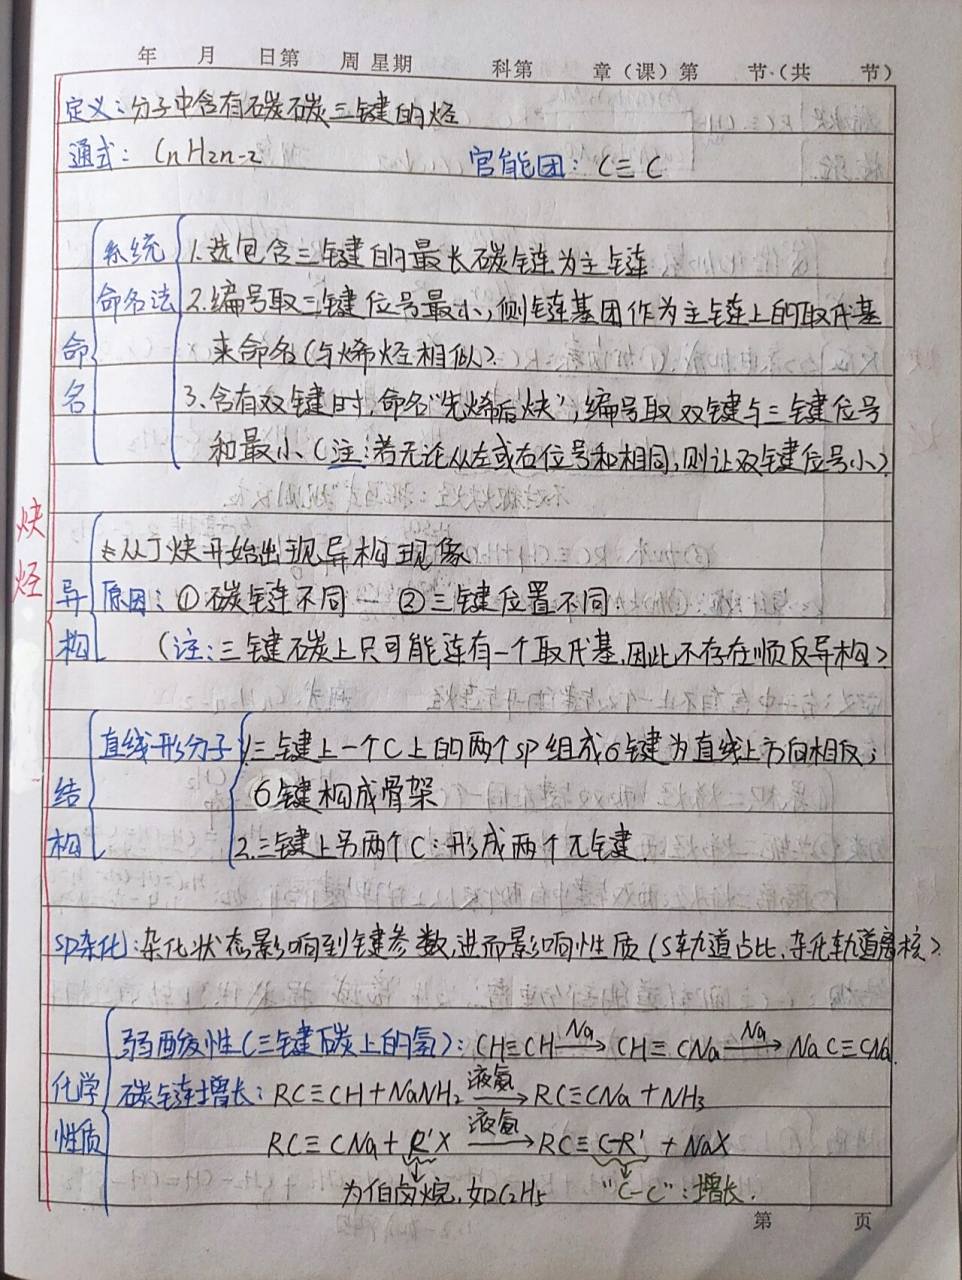 年 月 日第 周 星期 科第 章（课）第 节·（共 节）
定义：分子中含有碳碳三键的烃
通式：CnH2n-2 官能团：C≡C
炔烃
命名
系统命名法
1.选包含三键的最长碳链为主链
2.编号取三键位号最小，侧链基团作为主链上的取代基
来命名（与烯烃相似）.
3.含有双键时，命名“先烯后炔”，编号取双键与三键位号
和最小（注：若无论从左或右位号和相同，则让双键位号小）
异构
从丁炔开始出现异构现象
原因：①碳链不同 ②三键位置不同
（注：三键碳上只可能连有一个取代基，因此不存在顺反异构）
结构
直线形分子
1.三键上一个C上的两个sp组成6键为直线上方向相反；
6键构成骨架
2.三键上另两个C：形成两个兀键.
sp杂化：杂化状态影响到键参数，进而影响性质（S轨道占比，杂化轨道离核）
化学性质
弱酸性（三键碳上的氢）：CH≡CH —Na→ CH≡CNa —Na→ NaC≡CNa.
碳链增长：RC≡CH+NaNH2 —液氨→ RC≡CNa+NH3
RC≡CNa+R'X —液氨→ RC≡C-R'+NaX
为伯卤烷，如C2H5 “C-C”：增长.
第 页